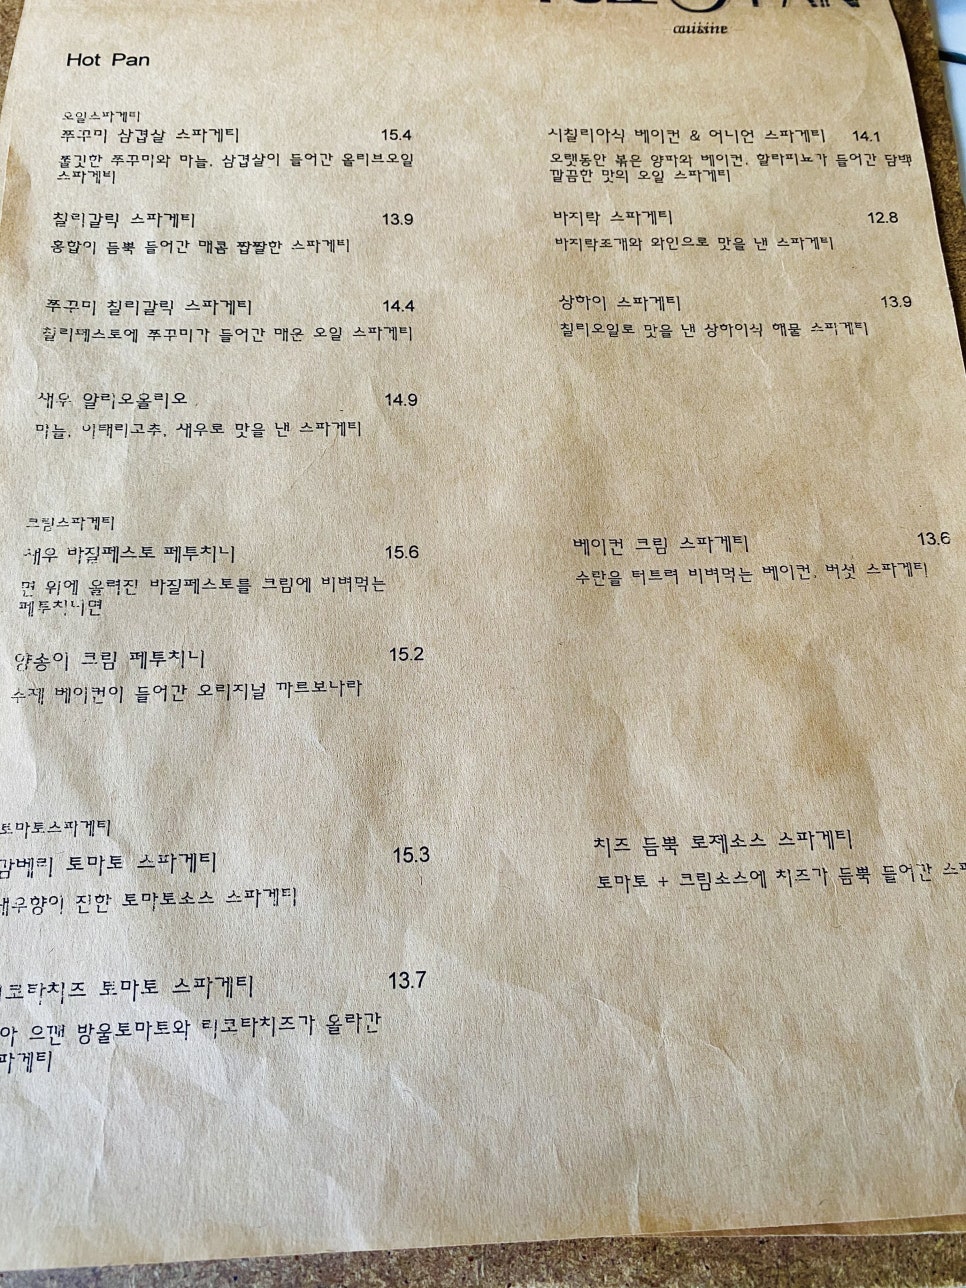 cuisine
Hot Pan
오일스파게티
쭈꾸미 삼겹살 스파게티 15.4
쫄깃한 쭈꾸미와 마늘, 삼겹살이 들어간 올리브오일
스파게티
칠리갈릭 스파게티 13.9
홍합이 듬뿍 들어간 매콤 짭짤한 스파게티
쭈꾸미 칠리갈릭 스파게티 14.4
칠리페스토에 쭈꾸미가 들어간 매운 오일 스파게티
새우 알리오올리오 14.9
마늘, 이태리고추, 새우로 맛을 낸 스파게티
시칠리아식 베이컨 & 어니언 스파게티 14.1
오랫동안 볶은 양파와 베이컨, 할라피뇨가 들어간 담백
깔끔한 맛의 오일 스파게티
바지락 스파게티 12.8
바지락조개와 와인으로 맛을 낸 스파게티
상하이 스파게티 13.9
칠리오일로 맛을 낸 상하이식 해물 스파게티
크림스파게티
새우 바질페스토 페투치니 15.6
면 위에 올려진 바질페스토를 크림에 비벼먹는
페투치니면
양송이 크림 페투치니 15.2
수제 베이컨이 들어간 오리지널 까르보나라
베이컨 크림 스파게티 13.6
수란을 터트려 비벼먹는 베이컨, 버섯 스파게티
토마토스파게티
감베리 토마토 스파게티 15.3
새우향이 진한 토마토소스 스파게티
리코타치즈 토마토 스파게티 13.7
으깬 방울토마토와 리코타치즈가 올라간
스파게티
치즈 듬뿍 로제소스 스파게티
토마토 + 크림소스에 치즈가 듬뿍 들어간